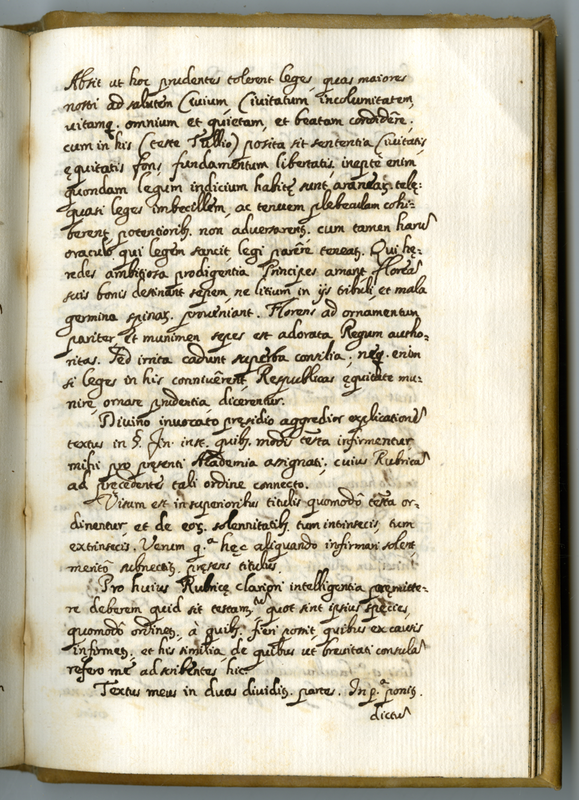 Absit ut hoc prudentes tolerent leges quas maiores
nostri ad salutem Civium, Civitatum incolumitatem,
vitamq. omnium et quietam, et beatam condidêre.
cum in his (teste Tullio) posita sit sententia Civitatis
ęquitatis fons fundamentum libertatis, ineptè enim
quondam legum indicium habitę sunt araneaȩ telę:
quasi leges imbecillem, ac tenuem plebeculam cohi-
berent, potentiorib. non adversarent. cum tamen
oraculo, qui legem sancit, legi parêre teneat. Qui hę-
redes ambitiosa prodigentia Principes amant
suis bonis destinant sepem, ne litium in ijs tribuli, et mala
germina spinas proveniant. Florens ad ornamentum
pariter et munimen sepes est adorata Regum autho-
ritas. Sed irrita cadunt superba consilia; neq. enim
si leges in his conniverent, Respublicas ęquitate mu-
nire, ornare prudentia dicerentur.
Divino invocato pręsidio aggredior explicationē
textus in §. fin. inst. quib. modis testa infirmentur
mihi pro pręsenti Academia assignati, cuius Rubricā
ad pręcedentes tali ordine connecto.
Visum est in superioribus titulis quomodò testa or-
dinentur, et de eor. solennitatib. tum intinsecis, tum
extrinsecis. Verum q.a hęc aliquando infirmari solent
meritò subnectit pręsens titulus.
Pro huius Rubricę clariori intelligentia pręmitte-
re deberem quid sit testam.tum quot sint ipsius species,
quomodò ordinet, à quib. fieri possit, quibus ex causis
infirmet, et his similia, de quibus ut brevitati consulā
refero me ad scribentes hic.
Textus meus in duas dividit partes. In p.a ponit
dictū